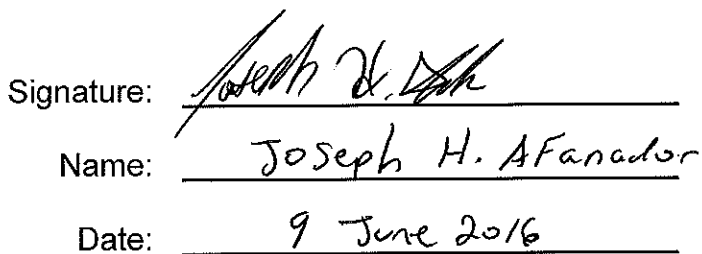 Signature: Joseph H.
Name: Joseph H. AFanador
Date: 9 June 2016